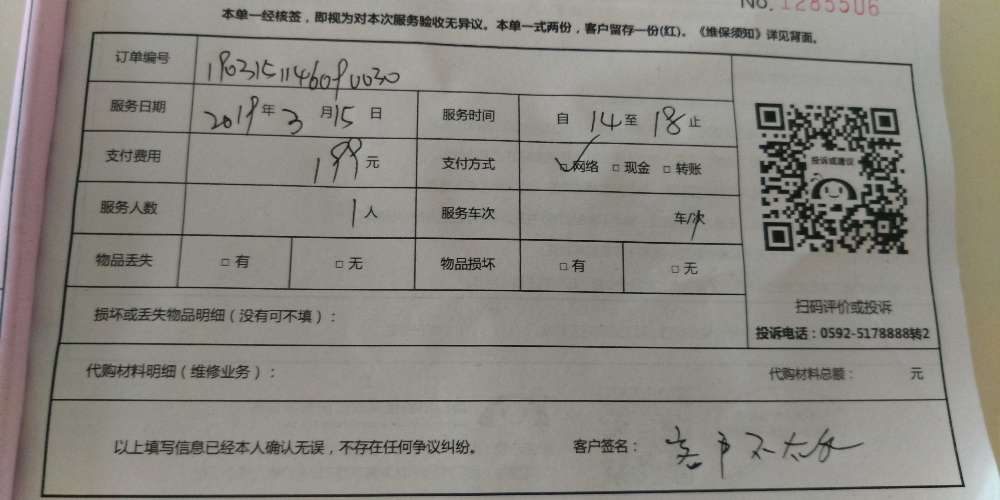 No.1285506
本单一经核签，即视为对本次服务验收无异议。本单一式两份，客户留存一份(红)。《维保须知》详见背面。
订单编号
服务日期 2019年3月15日 服务时间 自14至18止
支付费用 199元 支付方式 ☑网络 □现金 □转账
服务人数 1人 服务车次 车/次
物品丢失 □有 □无 物品损坏 □有 □无
投诉或建议
损坏或丢失物品明细（没有可不填）：
扫码评价或投诉
投诉电话：0592-5178888转2
代购材料明细（维修业务）： 代购材料总额： 元
以上填写信息已经本人确认无误，不存在任何争议纠纷。 客户签名：